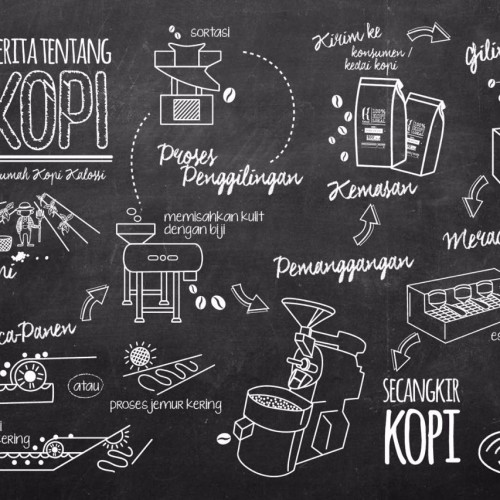 ERITA TENTANG
KOPI
umah Kopi Kalossi
sortasi
Proses
Penggilingan
memisahkan kulit
dengan biji
Kirim ke
konsumen /
kedai kopi
Kemasan
Pemanggangan
Gilin
Merac
es
ni
ca-Panen
atau
proses jemur kering
i
ering
SECANGKIR
KOPI